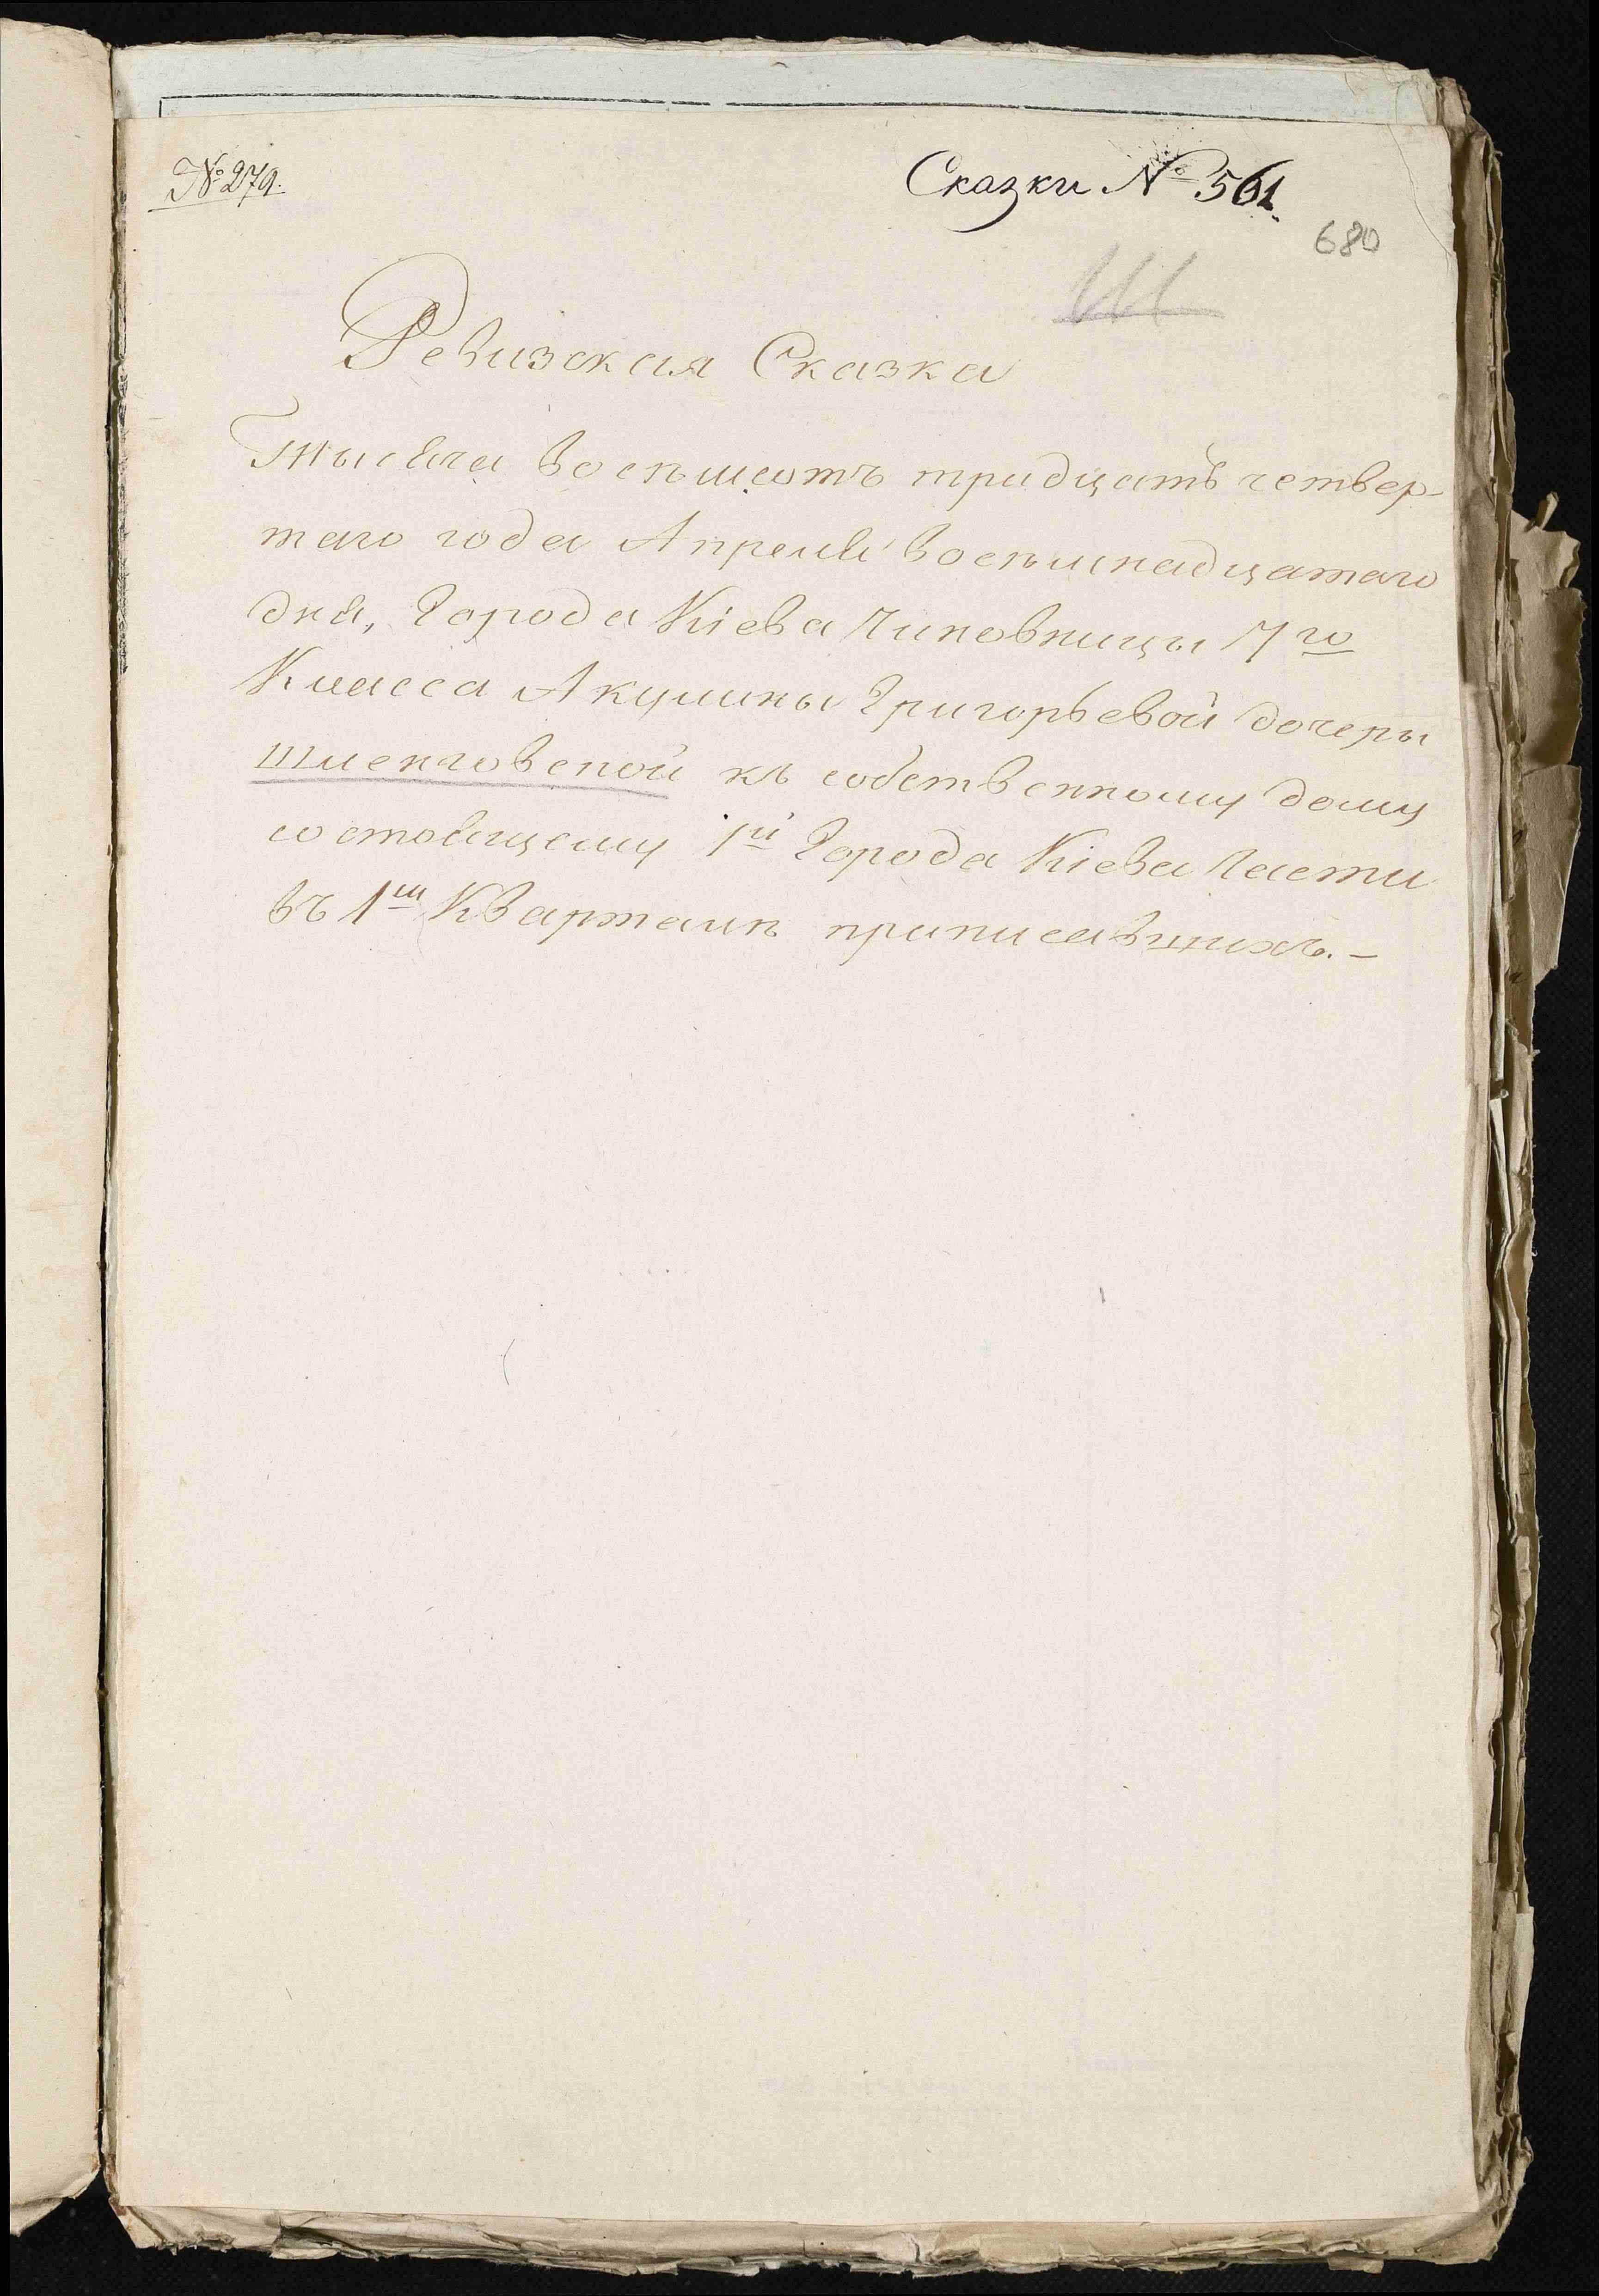 № 279.
Сказки № 561.
680
Ш
Ревизская Сказка
Тысяча восемьсотъ тридцать четвер-
таго года Апреля восемнадцатаго
дня, Города Кіева Чиновницы 7го
Класса Акулины Григорьевой дочеры
къ собственному дому
состоящему 1й Города Кіева Части
въ 1м Кварталѣ приписавшихъ. –